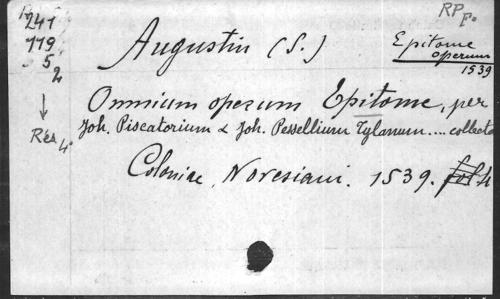 241
779
5
2
Rés 4°
RP
P.
Augustin (S.)
Epitome
operum
1539
Omnium operum Epitome, per
Joh. Piscatorium & Joh. Pessellium Tylanum .... collecta
Coloniae, Novesiani. 1539. fol 4